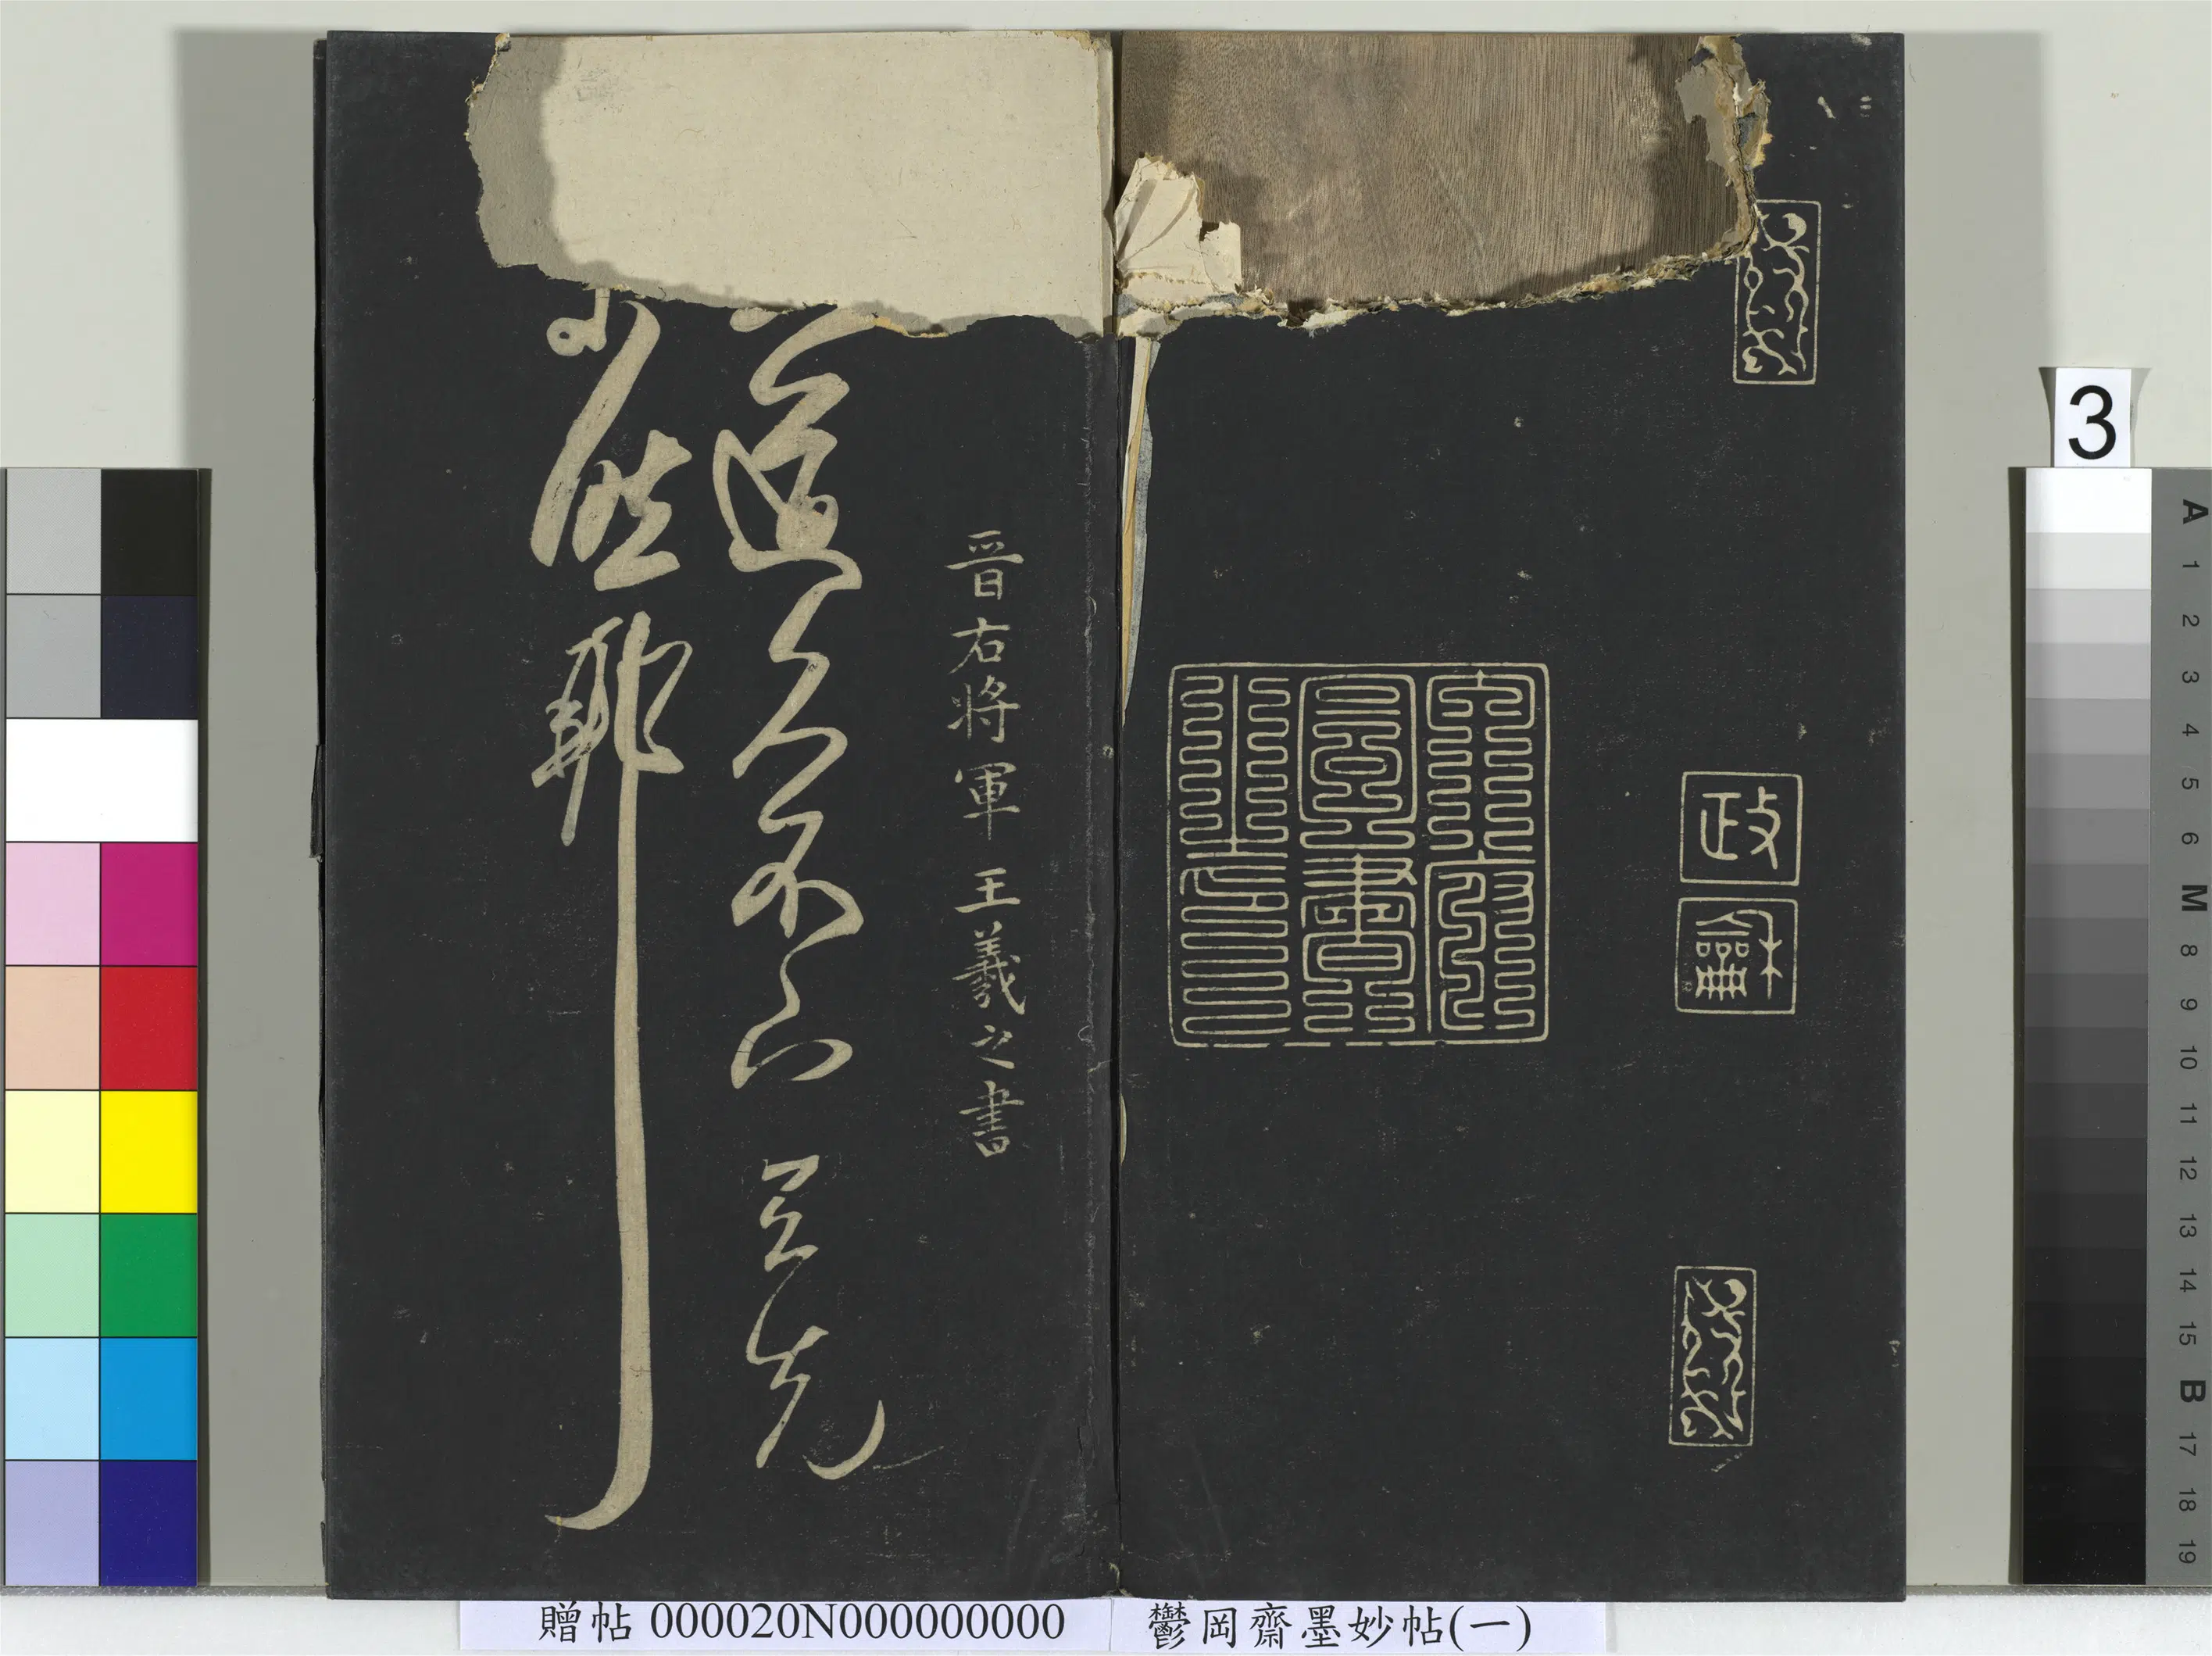 政
龢
晉右將軍王羲之書
道久不下与先
然耶
贈帖 000020N000000000
鬱岡齋墨妙帖(一)
3
A
1
2
3
4
5
6
M
8
9
10
11
12
13
14
15
B
17
18
19